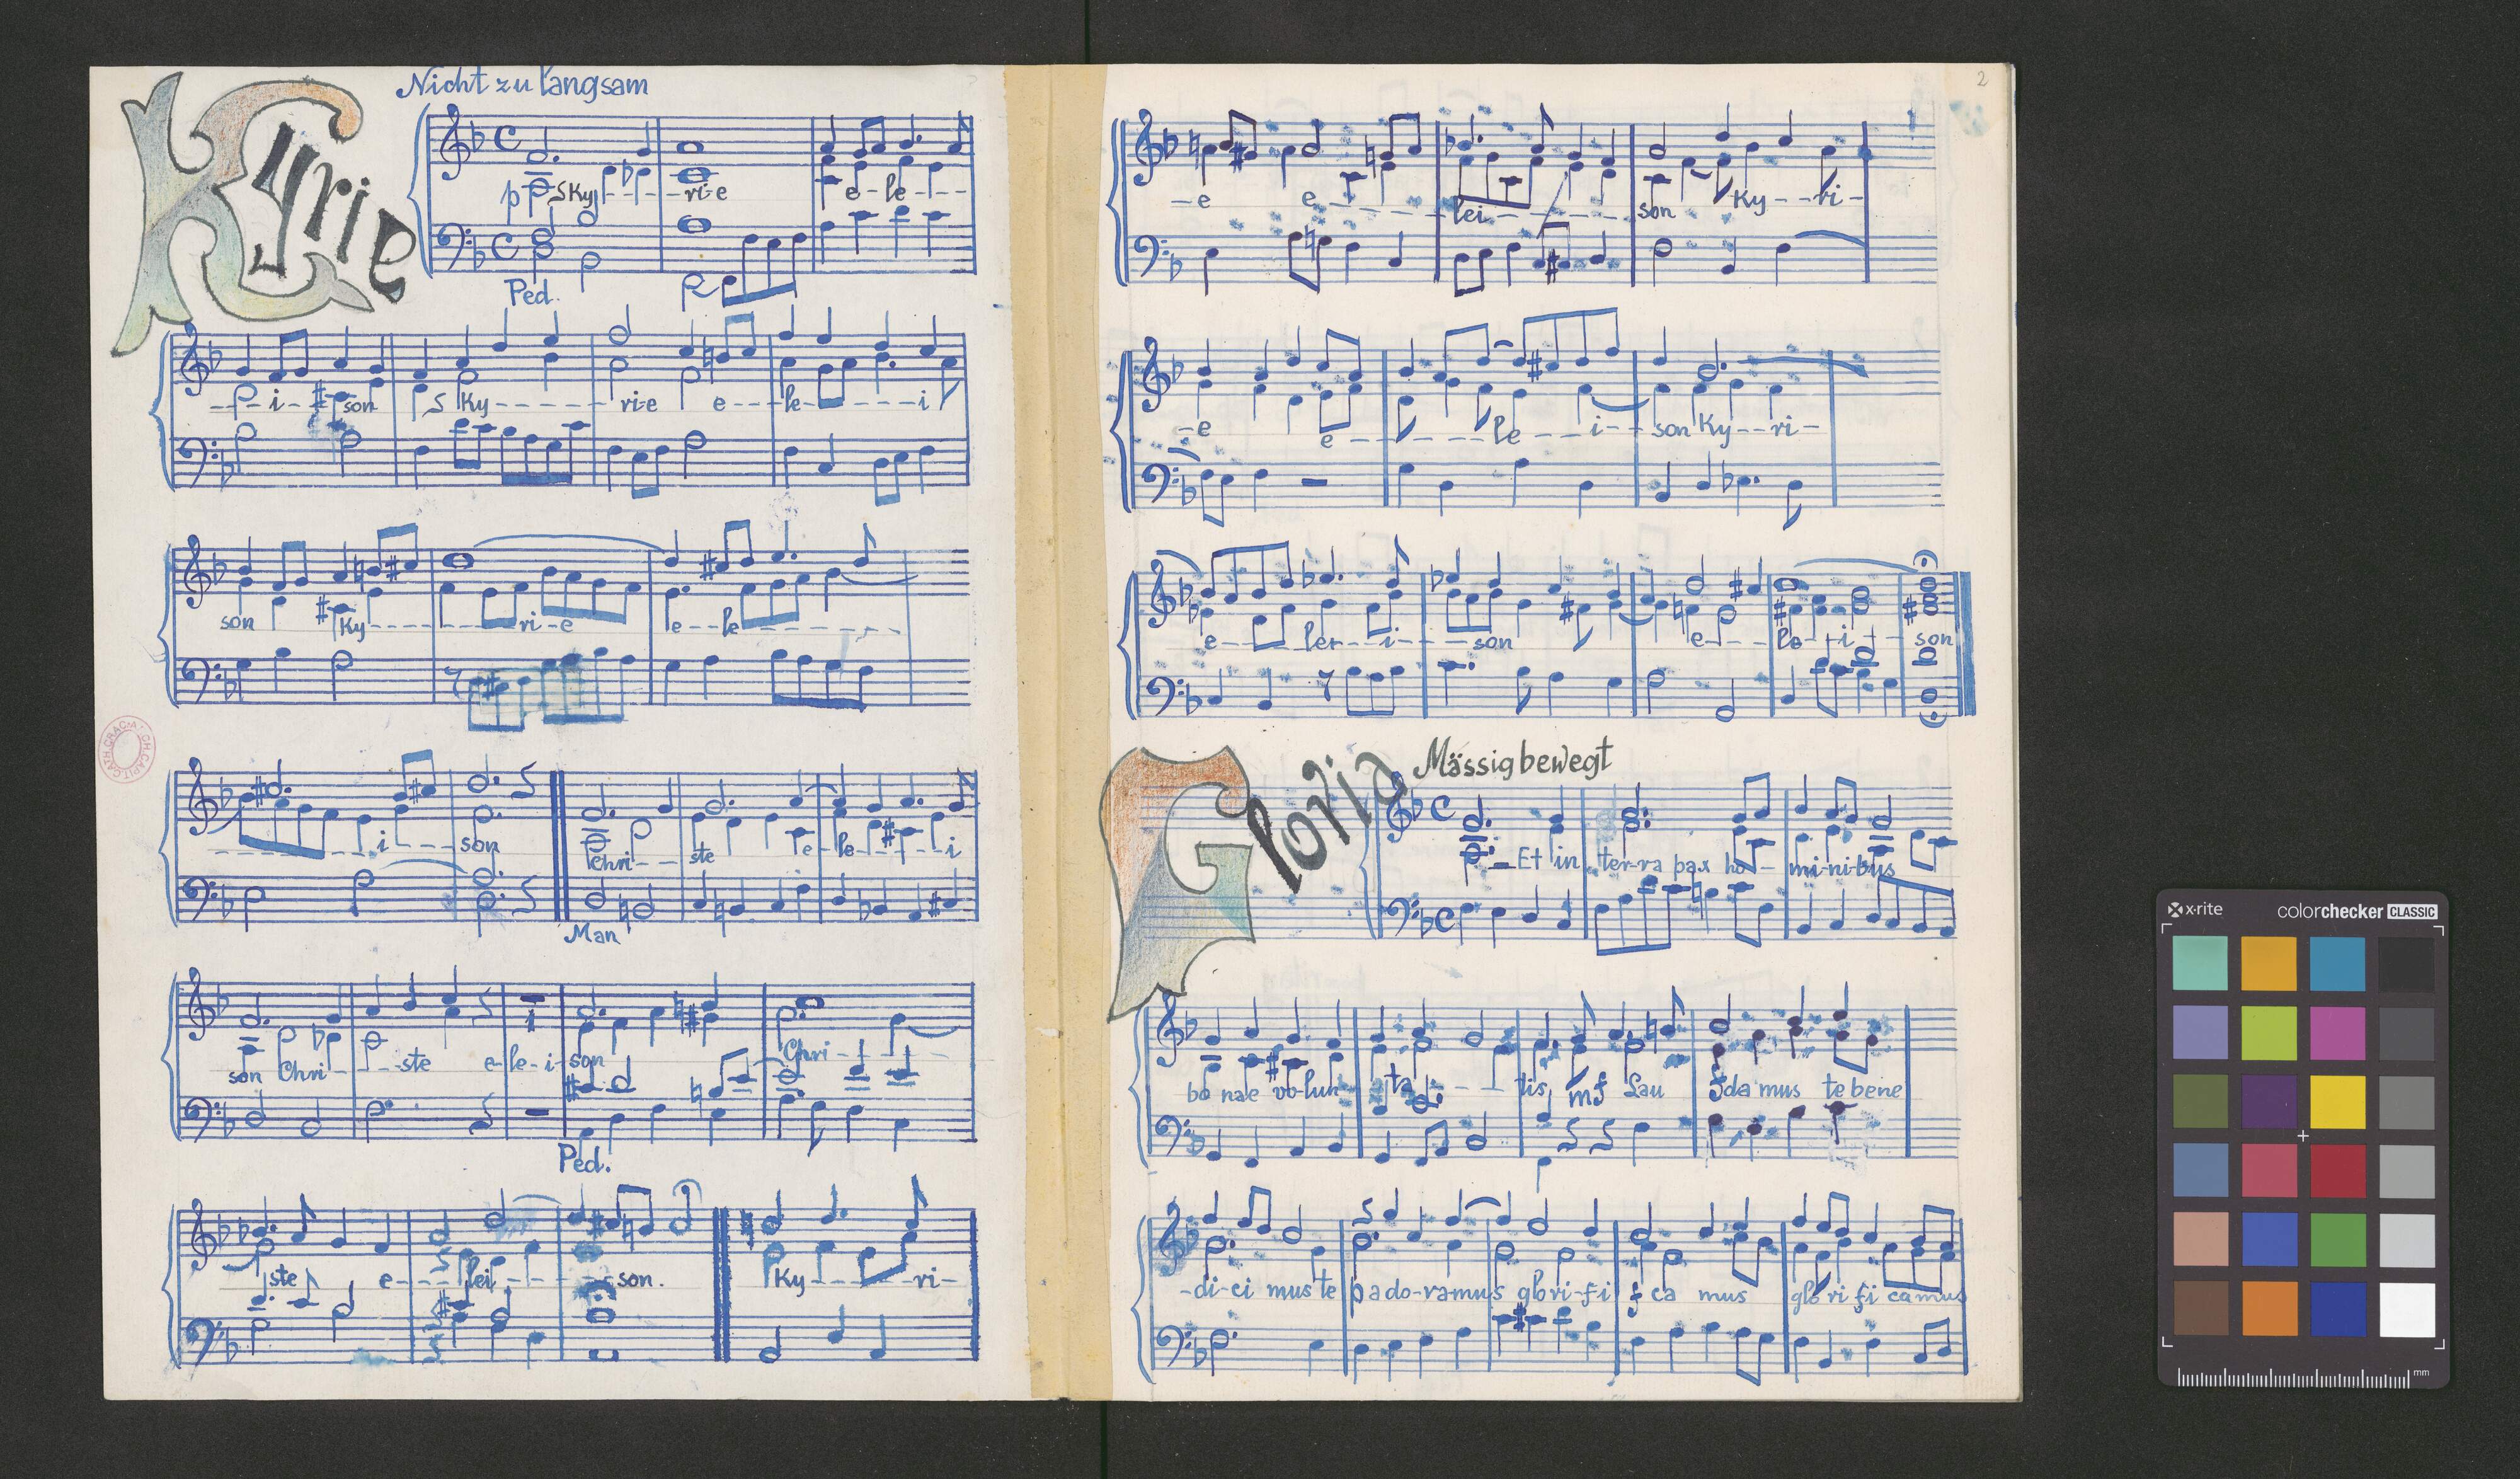 Nicht zu langsam
Kyrie
p Ky - - - - ri-e e-le - -
Ped.
- - i - son Ky - - - - - - ri-e e - - - le - - - - - i
son Ky - - - - - - - - ri - e e - - le - - - - - - -
- - - - - - - i - - - son Chri - - ste e - le - - - - i
Man
son Chri - - - ste e-le-i-son Chri - - - -
Ped.
ste e - - - lei - - - - - son. Ky - - - - ri-
ARCH. CAPIT. CATH. CRAC.
2
-e e - - - - - lei - - - - - - son Ky - - ri -
-e e - - - - - le - - i - - son Ky - - ri -
e - - - lei - - i - - - son e - - - le - i - son
Gloria
Mässig bewegt
Et in ter-ra pax ho - mi-ni-bus
bo nae vo-lun ta - - - tis mf Lau f da mus te bene
-di-ci mus te p ado-ramus glori-fi f ca mus glo ri fi camus
x-rite colorchecker CLASSIC
mm